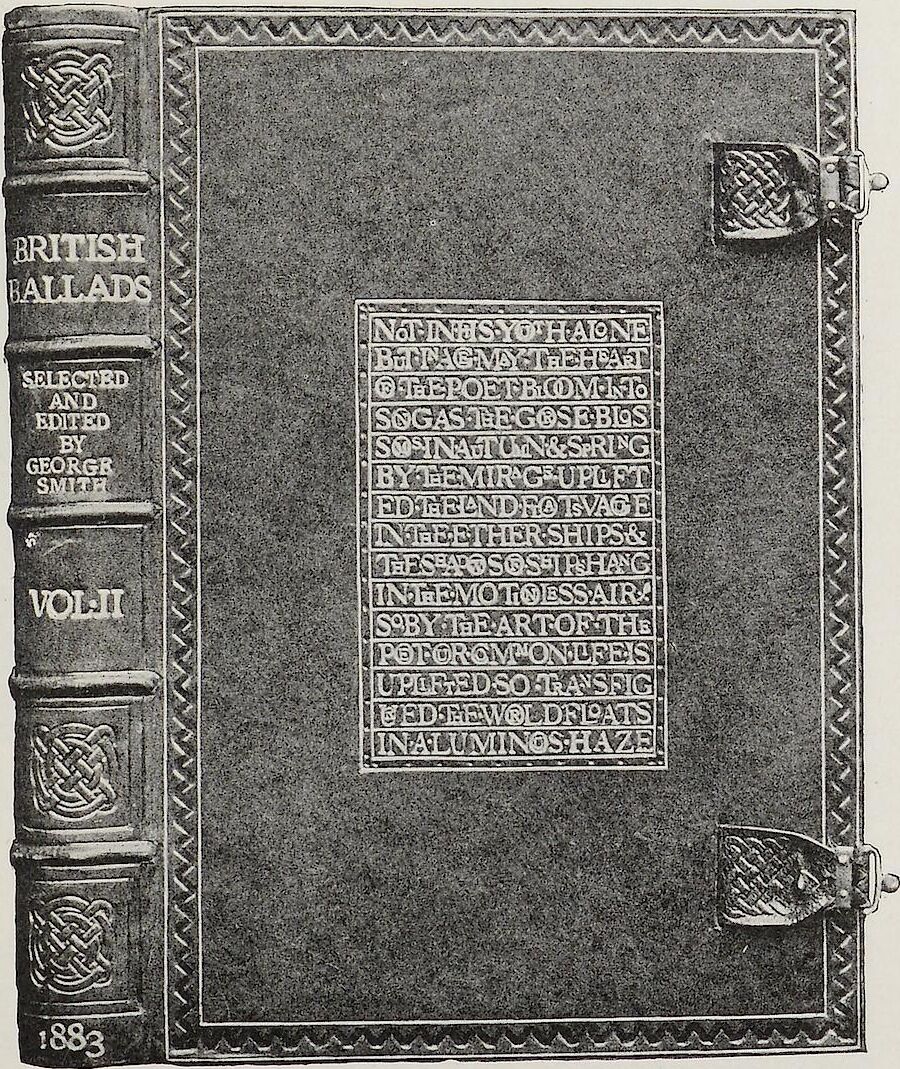 BRITISH
BALLADS
SELECTED
AND
EDITED
BY
GEORGE
SMITH
VOL·II
1883
NOT·IN·HIS·YOUTH·ALONE
BUT·IN·AGE·MAY·THE·HEART
OF·THE·POET·BLOOM·INTO
SONG·AS·THE·GORSE·BLOS
SOMS·IN·AUTUMN·&·SPRING
BY·THE·MIRAGE·UPLIFT
ED·THE·LAND·FLOATS·VAGUE
IN·THE·ETHER·SHIPS·&
THE·SHADOWS·OF·SHIPS·HANG
IN·THE·MOTIONLESS·AIR:
SO·BY·THE·ART·OF·THE
POET·OUR·COMMON·LIFE·IS
UPLIFTED·SO·TRANSFIG
URED·THE·WORLD·FLOATS
IN·A·LUMINOUS·HAZE